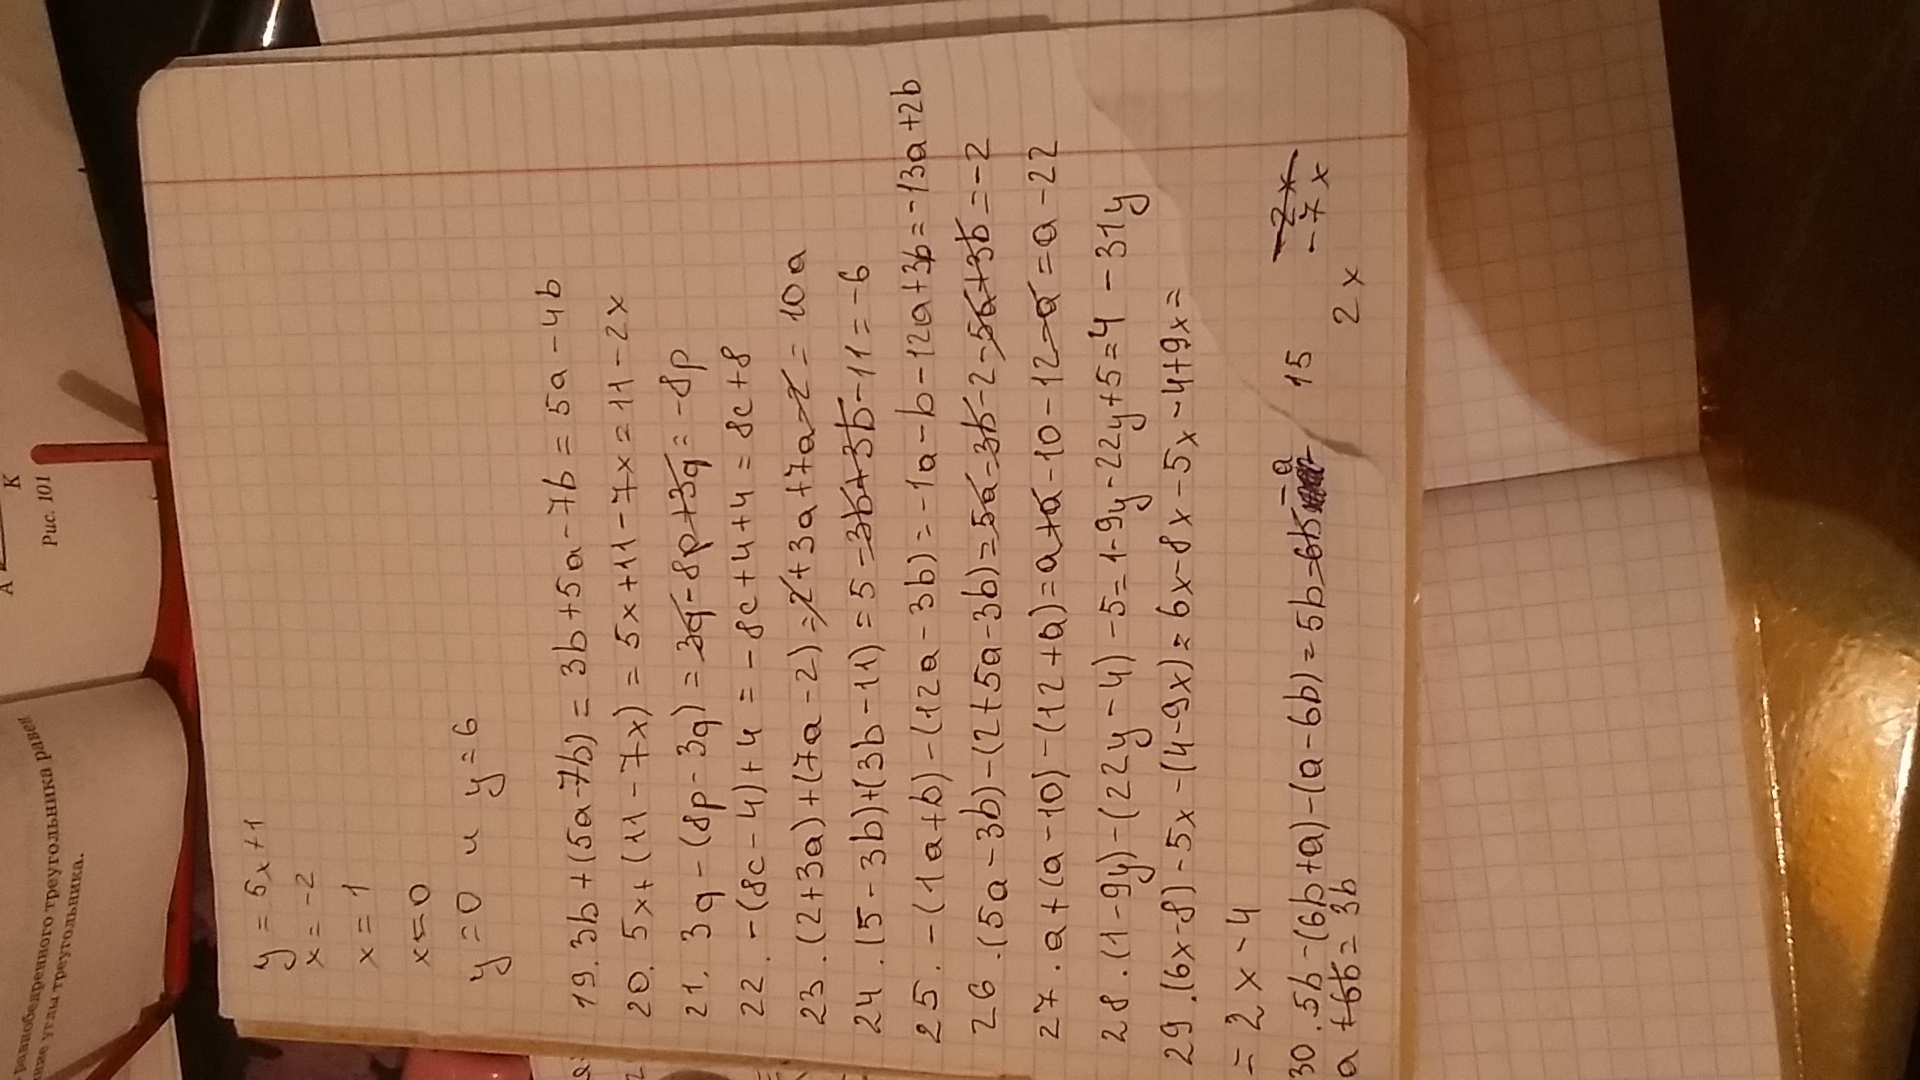 y = 5x+1
x = -2
x = 1
x=0
y=0 и y=6
19. 3b+(5a-7b) = 3b+5a-7b = 5a-4b
20. 5x+(11-7x) = 5x+11-7x = 11-2x
21. 3q-(8p-3q) = 3q-8p+3q = -8p
22. -(8c-4)+4 = -8c+4+4 = 8c+8
23. (2+3a)+(7a-2) = 2+3a+7a-2 = 10a
24. (5-3b)+(3b-11) = 5-3b+3b-11 = -6
25. -(1a+b)-(12a-3b) = -1a-b-12a+3b = -13a+2b
26. (5a-3b)-(2+5a-3b) = 5a-3b-2-5a+3b = -2
27. a+(a-10)-(12+a) = a+a-10-12-a = a-22
28. (1-9y)-(22y-4)-5 = 1-9y-22y+5 = 4-31y
29. (6x-8)-5x-(4-9x) = 6x-8x-5x-4+9x =
= 2x-4
30. 5b-(6b+a)-(a-6b) = 5b-6b -a
a+6b = 3b
15
-2x
-7x
2x
А
К
Рис. 101
равнобедренного треугольника равен
углы треугольника.